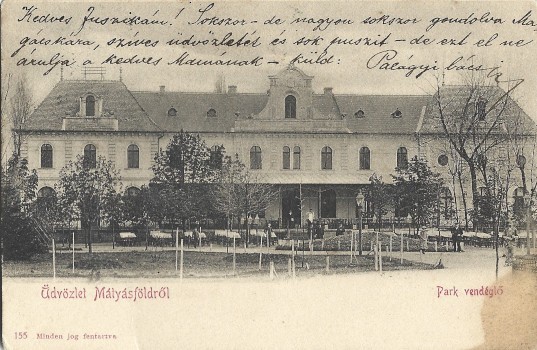 Kedves Juszikám! Sokszor - de nagyon sokszor gondolva Ma-
gácskára, szíves üdvözletét és sok puszit - de ezt el ne
árulja a kedves Mamának - küld: Palágyi bácsi
Üdvözlet Mátyásföldről
Park vendéglő
155 Minden jog fentartva